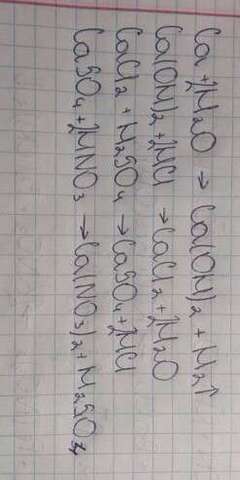 Ca + 2H₂O → Ca(OH)₂ + H₂↑
Ca(OH)₂ + 2HCl → CaCl₂ + 2H₂O
CaCl₂ + H₂SO₄ → CaSO₄ + 2HCl
CaSO₄ + 2HNO₃ → Ca(NO₃)₂ + H₂SO₄